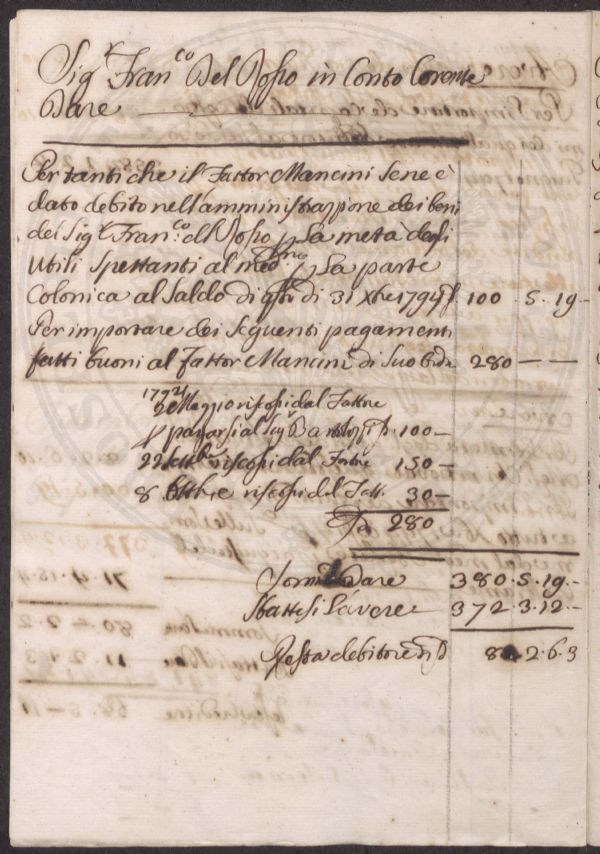 Sig.r Fran.co Del Rosso in Conto Corente
Dare
Per tanti che il Fattor Mancini Sene è
dato debito nell'amministrazzione dei beni
dei Sig.r Fran.co del Rosso p. La metà degli
Utili Spettanti al med.mo p. La parte
Colonica al Saldo di q.sto di 31 Xbre 1794 f 100 . 5 . 19 -
Per importare dei seguenti pagamenti
fatti buoni al Fattor Mancini di Suo 280 — —
1794 Maggio riscossi dal Fattore
p pagarsi al Sig.r 100 -
22 Sett.bre riscossi dal Fattore 150 -
8 Ottbre riscossi dal Fatt. 30 -
280
Somma Dare 380 . 5 . 19 -
Sbattesi L'avere 372 . 3 . 12 -
Resta debitore 8 . 2 . 6 . 3